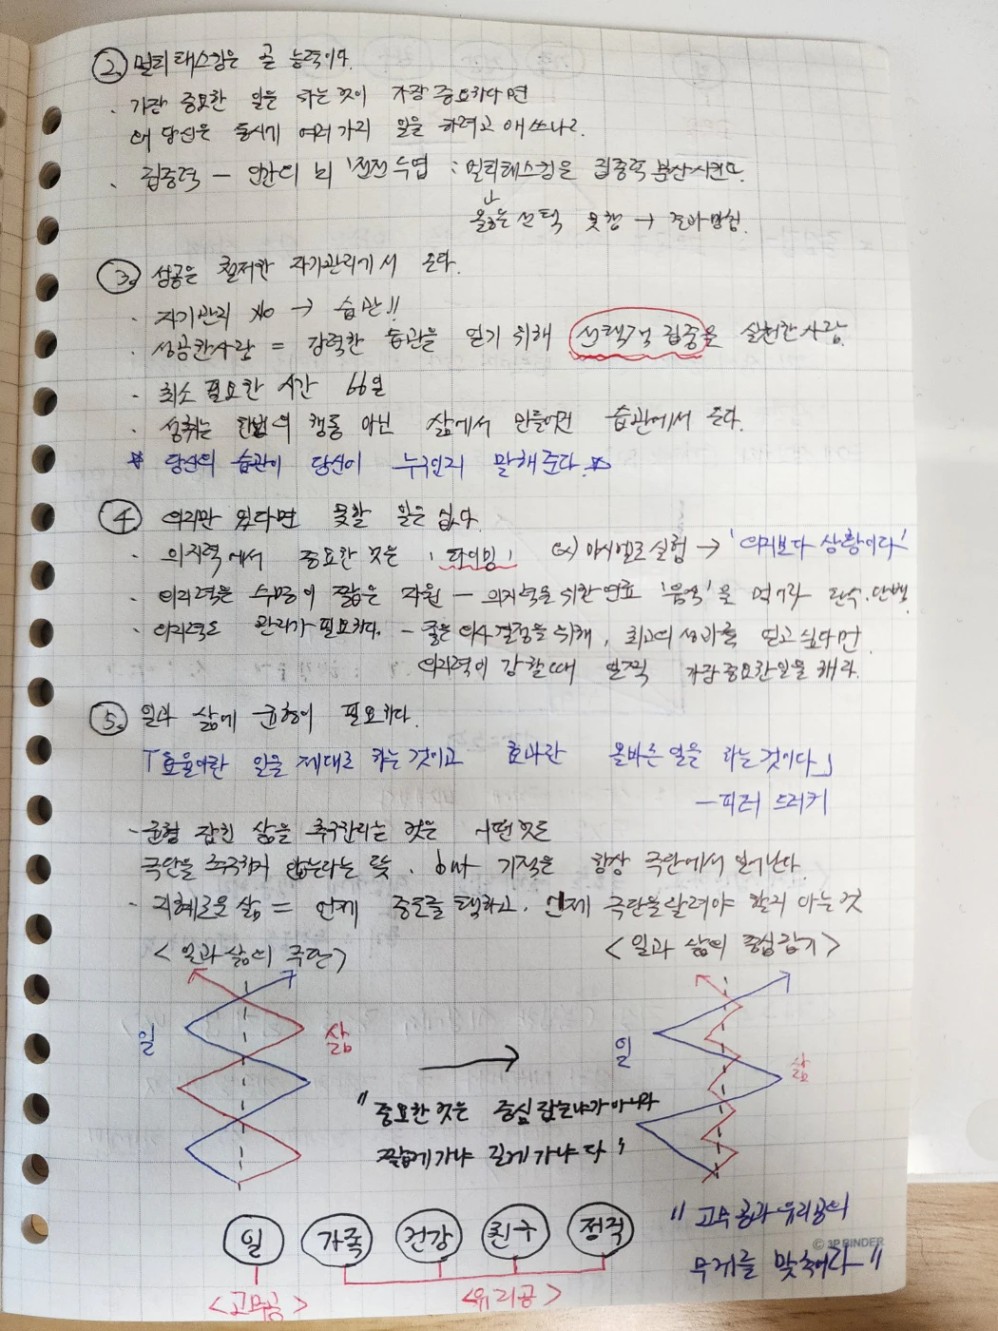 ② 멀티태스킹은 곧 능력이다.
· 가장 중요한 일을 하는 것이 가장 중요하다면
왜 당신은 동시에 여러가지 일을 하려고 애쓰나?
· 집중력 – 인간의 뇌 '전전두엽 : 멀티태스킹은 집중력 분산시킨다.
↓
옳은 선택 못함 → 효과멍청.
③ 성공은 철저한 자기관리에서 온다.
· 자기관리 No → 습관!!
· 성공한사람 = 강력한 습관을 얻기 위해 선택적 집중을 실천한 사람.
· 최소 필요한 시간 66일
· 성취는 한번의 행동 아닌 삶에서 만들어진 습관에서 온다.
* 당신의 습관이 당신이 누구인지 말해준다. *
④ 의지만 있다면 못할 일은 없다.
· 의지력에서 중요한 것은 '타이밍' ex) 마시멜로 실험 → '의지보다 상황이다'
· 의지력은 수명이 짧은 자원 – 의지력을 위한 연료 '음식'을 먹기라 탄수.단백
· 의지력도 관리가 필요하다. – 좋은 의사결정을 위해, 최고의 성과를 얻고 싶다면
의지력이 강할때 일찍 가장 중요한 일을 해라.
⑤ 일과 삶에 균형이 필요하다.
「효율이란 일을 제대로 하는 것이고 효과란 올바른 일을 하는 것이다」
– 피터 드러커
· 균형 잡힌 삶을 추구한다는 것은 어떤 것도
극단을 추구하지 않는다는 뜻. but 기적은 항상 극단에서 일어난다.
· 지혜로운 삶 = 언제 중도를 택하고, 언제 극단을 달려야 할지 아는 것
<일과 삶의 극단>
<일과 삶의 중심잡기>
일 삶
일 삶
"중요한 것은 중심 잡느냐가 아니라
짧게 가냐 길게 가냐 다"
일 가족 건강 친구 정직
<고무공> <유리공>
"고무공과 유리공의
무게를 맞춰라"
© 3P BINDER